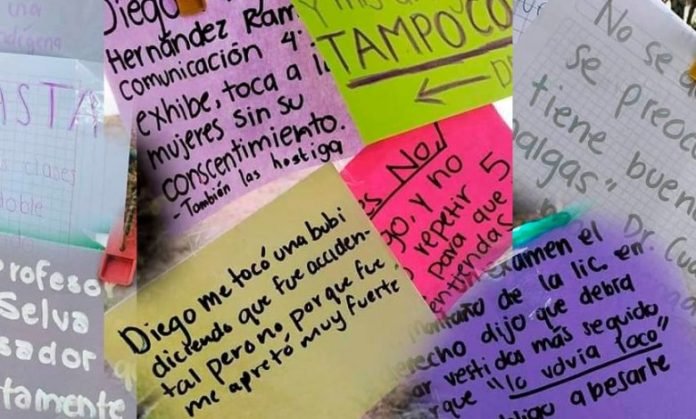 una
indígena
ASTA
clases
doble
Profesor
Selva
sador
tamente
Diego
Hernández Ram
Comunicación 4
exhibe, toca a l
mujeres sin su
conscentimiento.
- También las hostiga
Diego me tocó una bubi
diciendo que fue acciden-
tal pero no porque fue
me apretó muy fuerte
TAMPOCO
es No,
go, y no
repetir 5
para que
entiendas
No se
se preocu
tiene buen
algas"
Dr. Cu
examen el
Montaño de la lic. en
erecho dijo que debra
ar vestidos más seguido
rque "lo volvia loco"
digo a besarte